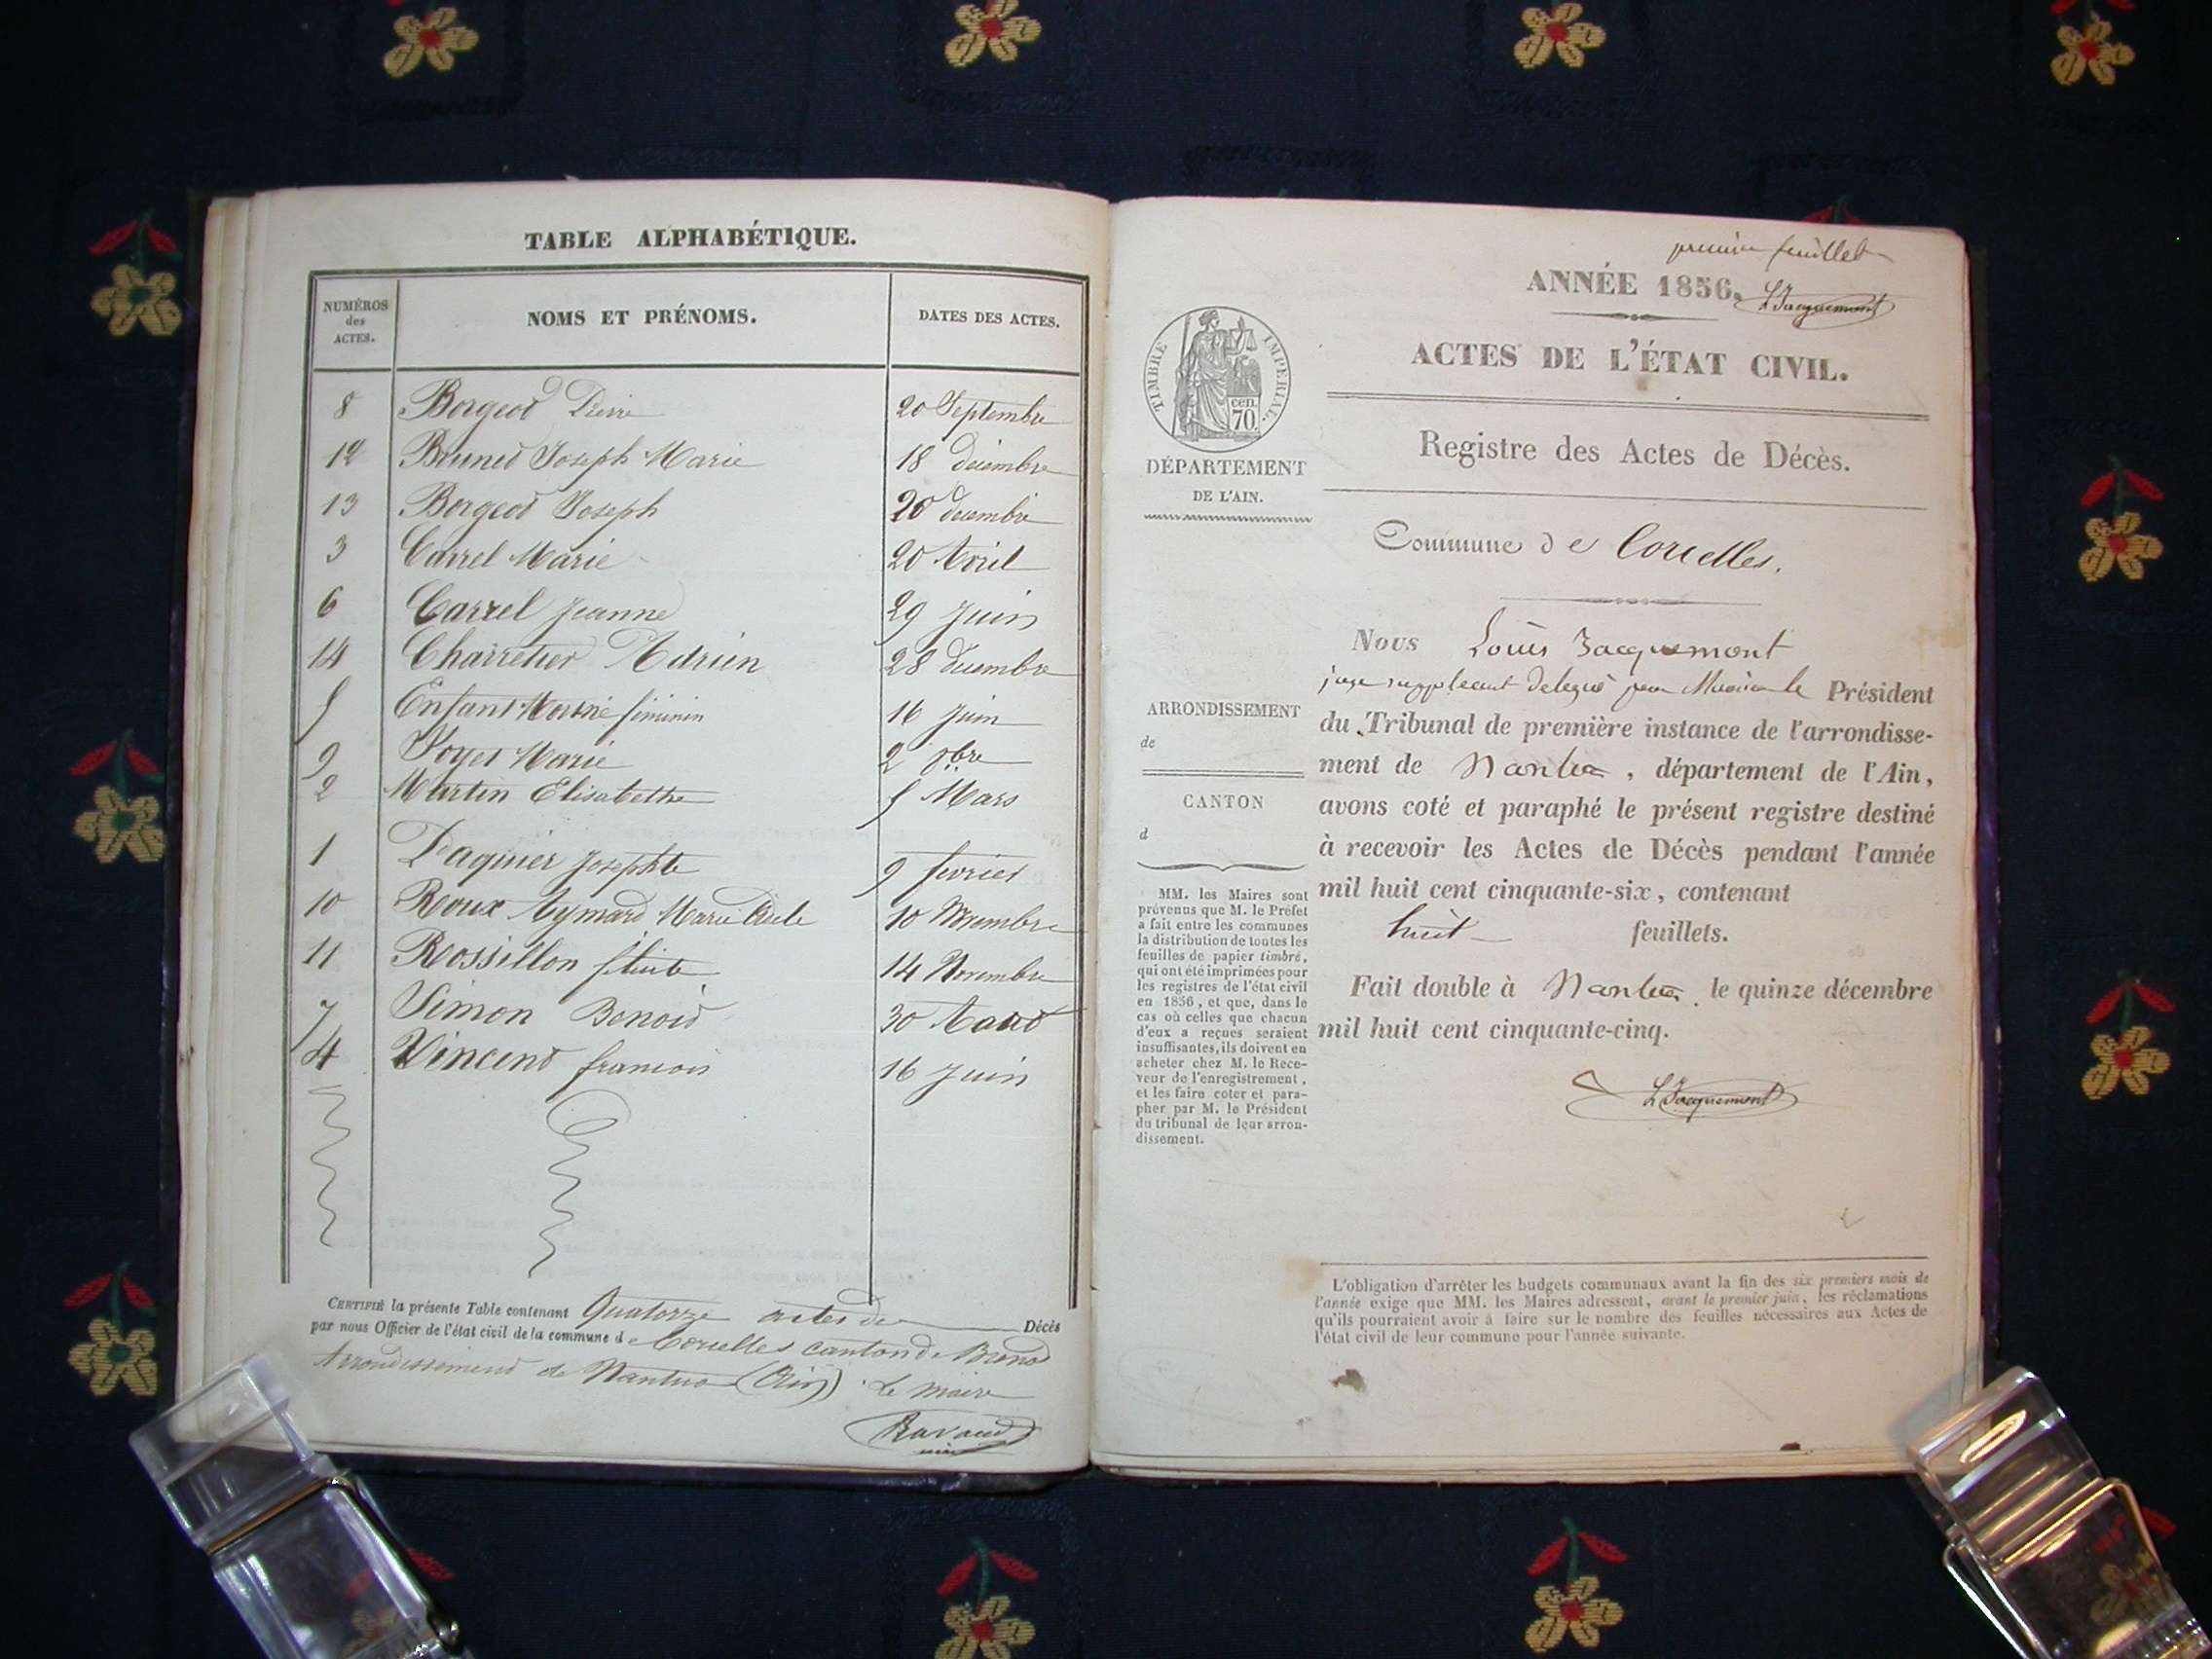 TABLE ALPHABÉTIQUE.
NUMÉROS des ACTES.
NOMS ET PRÉNOMS.
DATES DES ACTES.
8 Borgeot Pierre 20 Septembre
12 Brunet Joseph Marie 18 décembre
13 Borgeot Joseph 20 decembre
3 Carrel Marie 20 Avril
6 Carrel Jeanne 29 Juin
14 Charretier Adrien 28 décembre
5 Enfant Mort né féminin 16 Juin
9 Marie 2 9bre
2 Martin Elisabethe 5 Mars
1 Josephte 9 fevrier
10 Roux Aymard Marie 10 Novembre
11 Rossillon 14 Novembre
7 Simon Benoit 30 Aout
4 Vincent francois 16 Juin
CERTIFIÉ la présente Table contenant Quatorze actes de Décès
par nous Officier de l'état civil de la commune de Corcelles canton de Brenod
Arrondissement de Nantua (Ain) Le maire
Ravaud
premier feuillet
ANNÉE 1856.
L Jacquemont
ACTES DE L'ÉTAT CIVIL.
TIMBRE IMPERIAL.
cen.
70.
DÉPARTEMENT
DE L'AIN.
Registre des Actes de Décès.
Commune de Corcelles.
Nous Louis Jacquemont
juge suppléant delegué par Monsieur le Président
du Tribunal de première instance de l'arrondisse-
ment de Nantua, département de l'Ain,
avons coté et paraphé le présent registre destiné
à recevoir les Actes de Décès pendant l'année
mil huit cent cinquante-six, contenant
huit feuillets.
Fait double à Nantua, le quinze décembre
mil huit cent cinquante-cinq.
L Jacquemont
ARRONDISSEMENT
de
CANTON
d
MM. les Maires sont
prévenus que M. le Préfet
a fait entre les communes
la distribution de toutes les
feuilles de papier timbré,
qui ont été imprimées pour
les registres de l'état civil
en 1856, et que, dans le
cas où celles que chacun
d'eux a reçues seraient
insuffisantes, ils doivent en
acheter chez M. le Rece-
veur de l'enregistrement,
et les faire coter et para-
pher par M. le Président
du tribunal de leur arron-
dissement.
L'obligation d'arrêter les budgets communaux avant la fin des six premiers mois de
l'année exige que MM. les Maires adressent, avant le premier juin, les réclamations
qu'ils pourraient avoir à faire sur le nombre des feuilles nécessaires aux Actes de
l'état civil de leur commune pour l'année suivante.